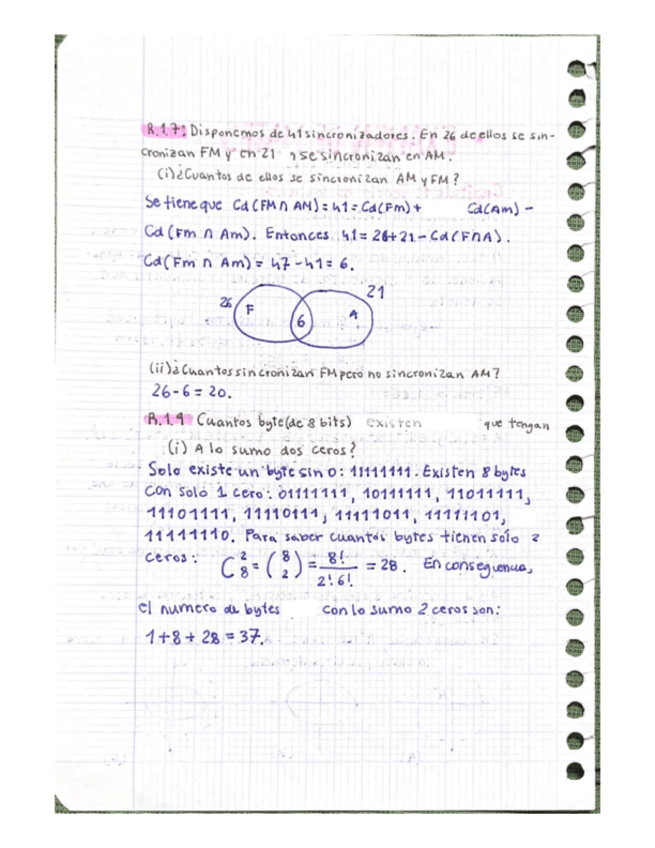 R.1.7: Disponemos de 41 sincronizadores. En 26 de ellos se sin-
cronizan FM y en 21 , se sincronizan en AM.
(i) ¿Cuantos de ellos se sincronizan AM y FM?
Se tiene que Cd(FM ∩ AM) = 41 = Cd(Fm) + Cd(Am) -
Cd(Fm ∩ Am). Entonces 41 = 26+21 - Cd(F∩A).
Cd(Fm ∩ Am) = 47-41 = 6.
26 F 6 A 21
(ii) ¿Cuantos sincronizan FM pero no sincronizan AM?
26-6 = 20.
R.1.9 Cuantos byte (de 8 bits) existen que tengan
(i) A lo sumo dos ceros?
Solo existe un byte sin 0: 11111111. Existen 8 bytes
con solo 1 cero: 01111111, 10111111, 11011111,
11101111, 11110111, 11111011, 11111101,
11111110. Para saber cuantos bytes tienen solo 2
ceros: C₈² = (8 2) = 8!/2!6! = 28. En consequencia,
el numero de bytes con lo sumo 2 ceros son:
1+8+28 = 37.